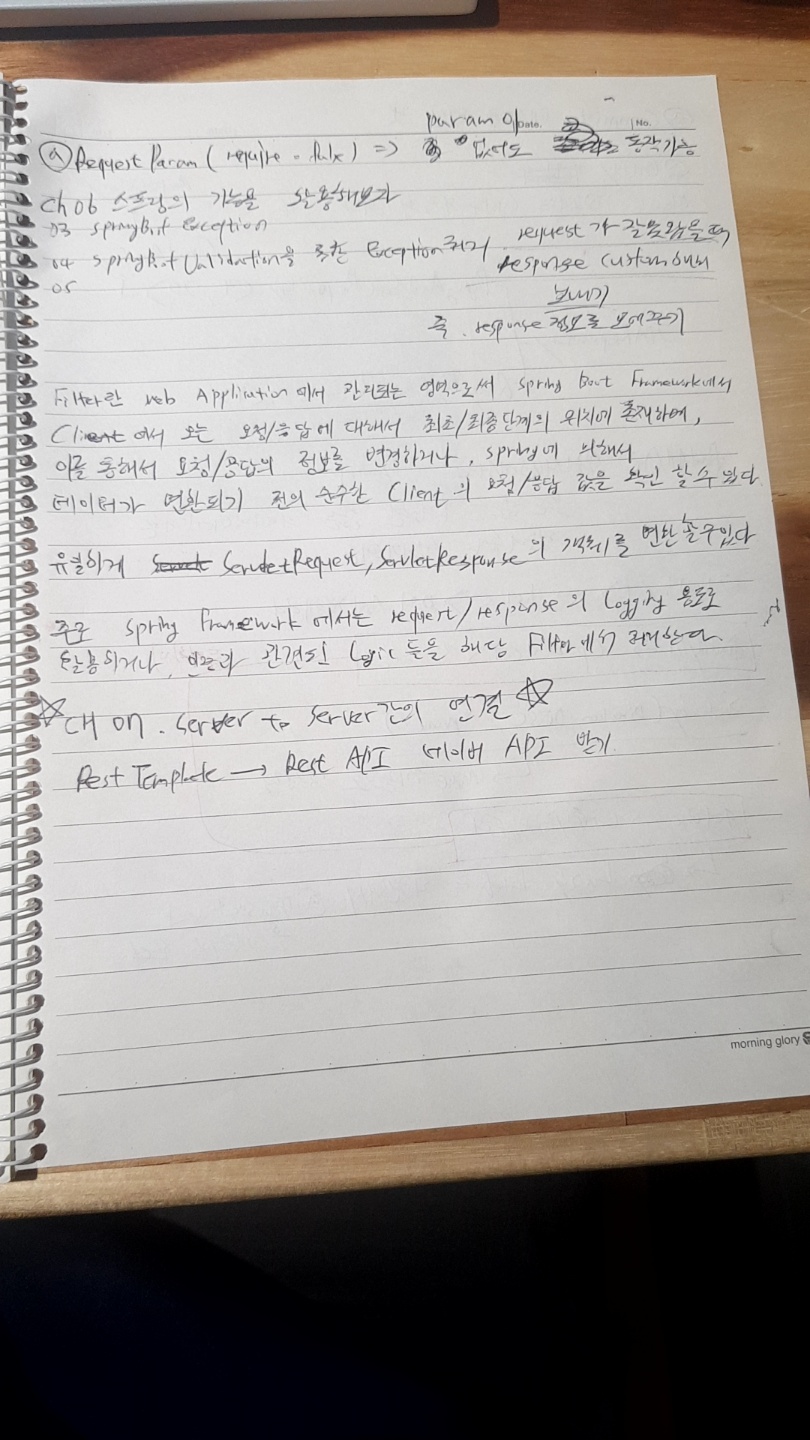 param 이 Date. No.
@Request Param ( require = false ) => 없어도 동작가능
ch06 스프링의 기능을 활용해보자
03 spring Boot Exception
04 spring Boot Validation을 통한 Exception 처리 request가 잘못 왔을 때
05 response custom 해서
보내기
즉. response 정보를 보여주기
Filter란 web Application에서 관리되는 영역으로써 spring Boot Framework에서
Client에서 오는 요청/응답에 대해서 최초/최종단계의 위치에 존재하며,
이를 통해서 요청/응답의 정보를 변경하거나, spring에 의해서
데이터가 변환되기 전의 순수한 Client의 요청/응답 값을 확인 할 수 있다.
유일하게 ServletRequest, ServletResponse의 객체를 변환할 수 있다
주로 spring Framework 에서는 request/response의 Logging 용도로
활용하거나, 인증과 관련된 Logic 들을 해당 Filter에서 처리한다.
☆ CH 07. Server to Server간의 연결 ☆
Rest Template → Rest API 네이버 API 받기
morning glory